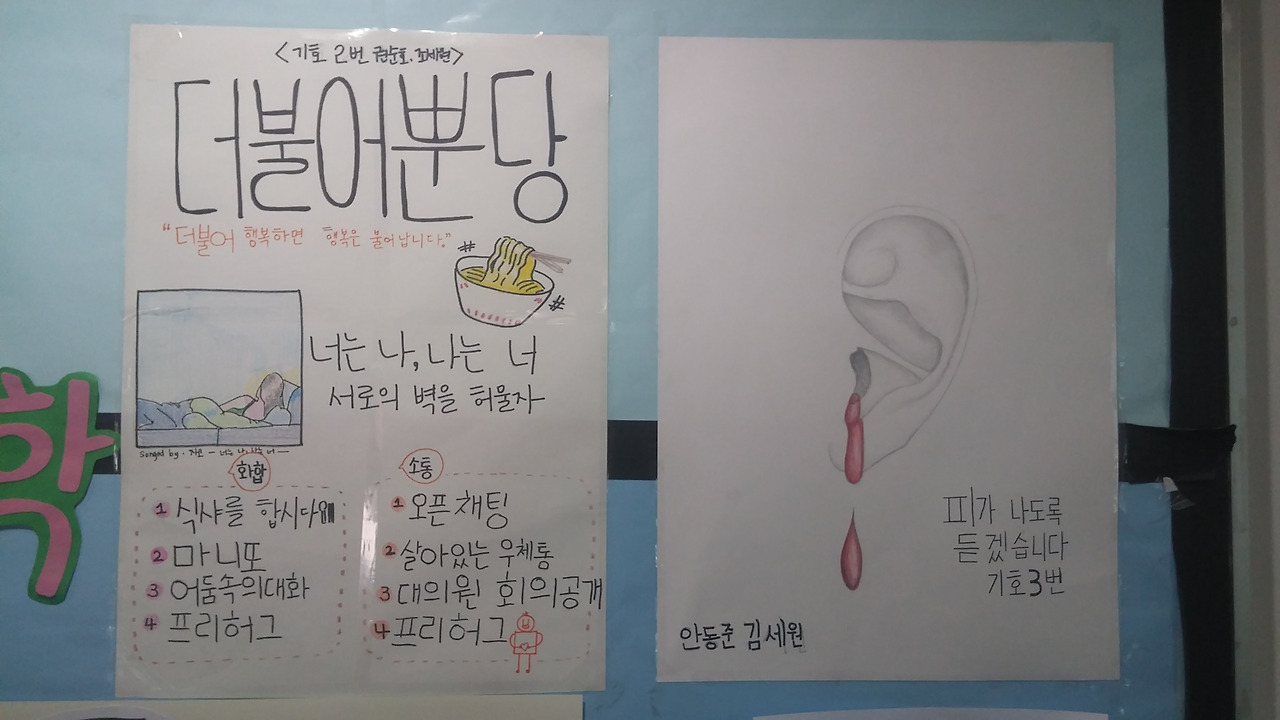 <기호 2번 권순호, 조세원>
더불어뿐당
"더불어 행복하면 행복은 불어납니다."
너는 나, 나는 너
서로의 벽을 허물자
Songed by. 지코 - 너는 나 나는 너 -
화합
1 식샤를 합시다
2 마니또
3 어둠속의대화
4 프리허그
소통
1 오픈채팅
2 살아있는 우체통
3 대의원 회의공개
4 프리허그
피가 나도록
듣겠습니다
기호3번
안동준 김세원
학